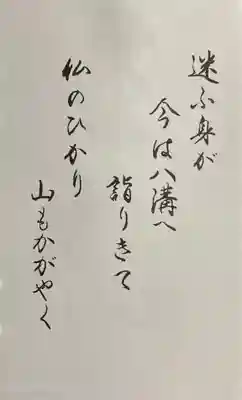 迷ふ身が
今は八溝へ
詣りきて
仏のひかり
山もかがやく